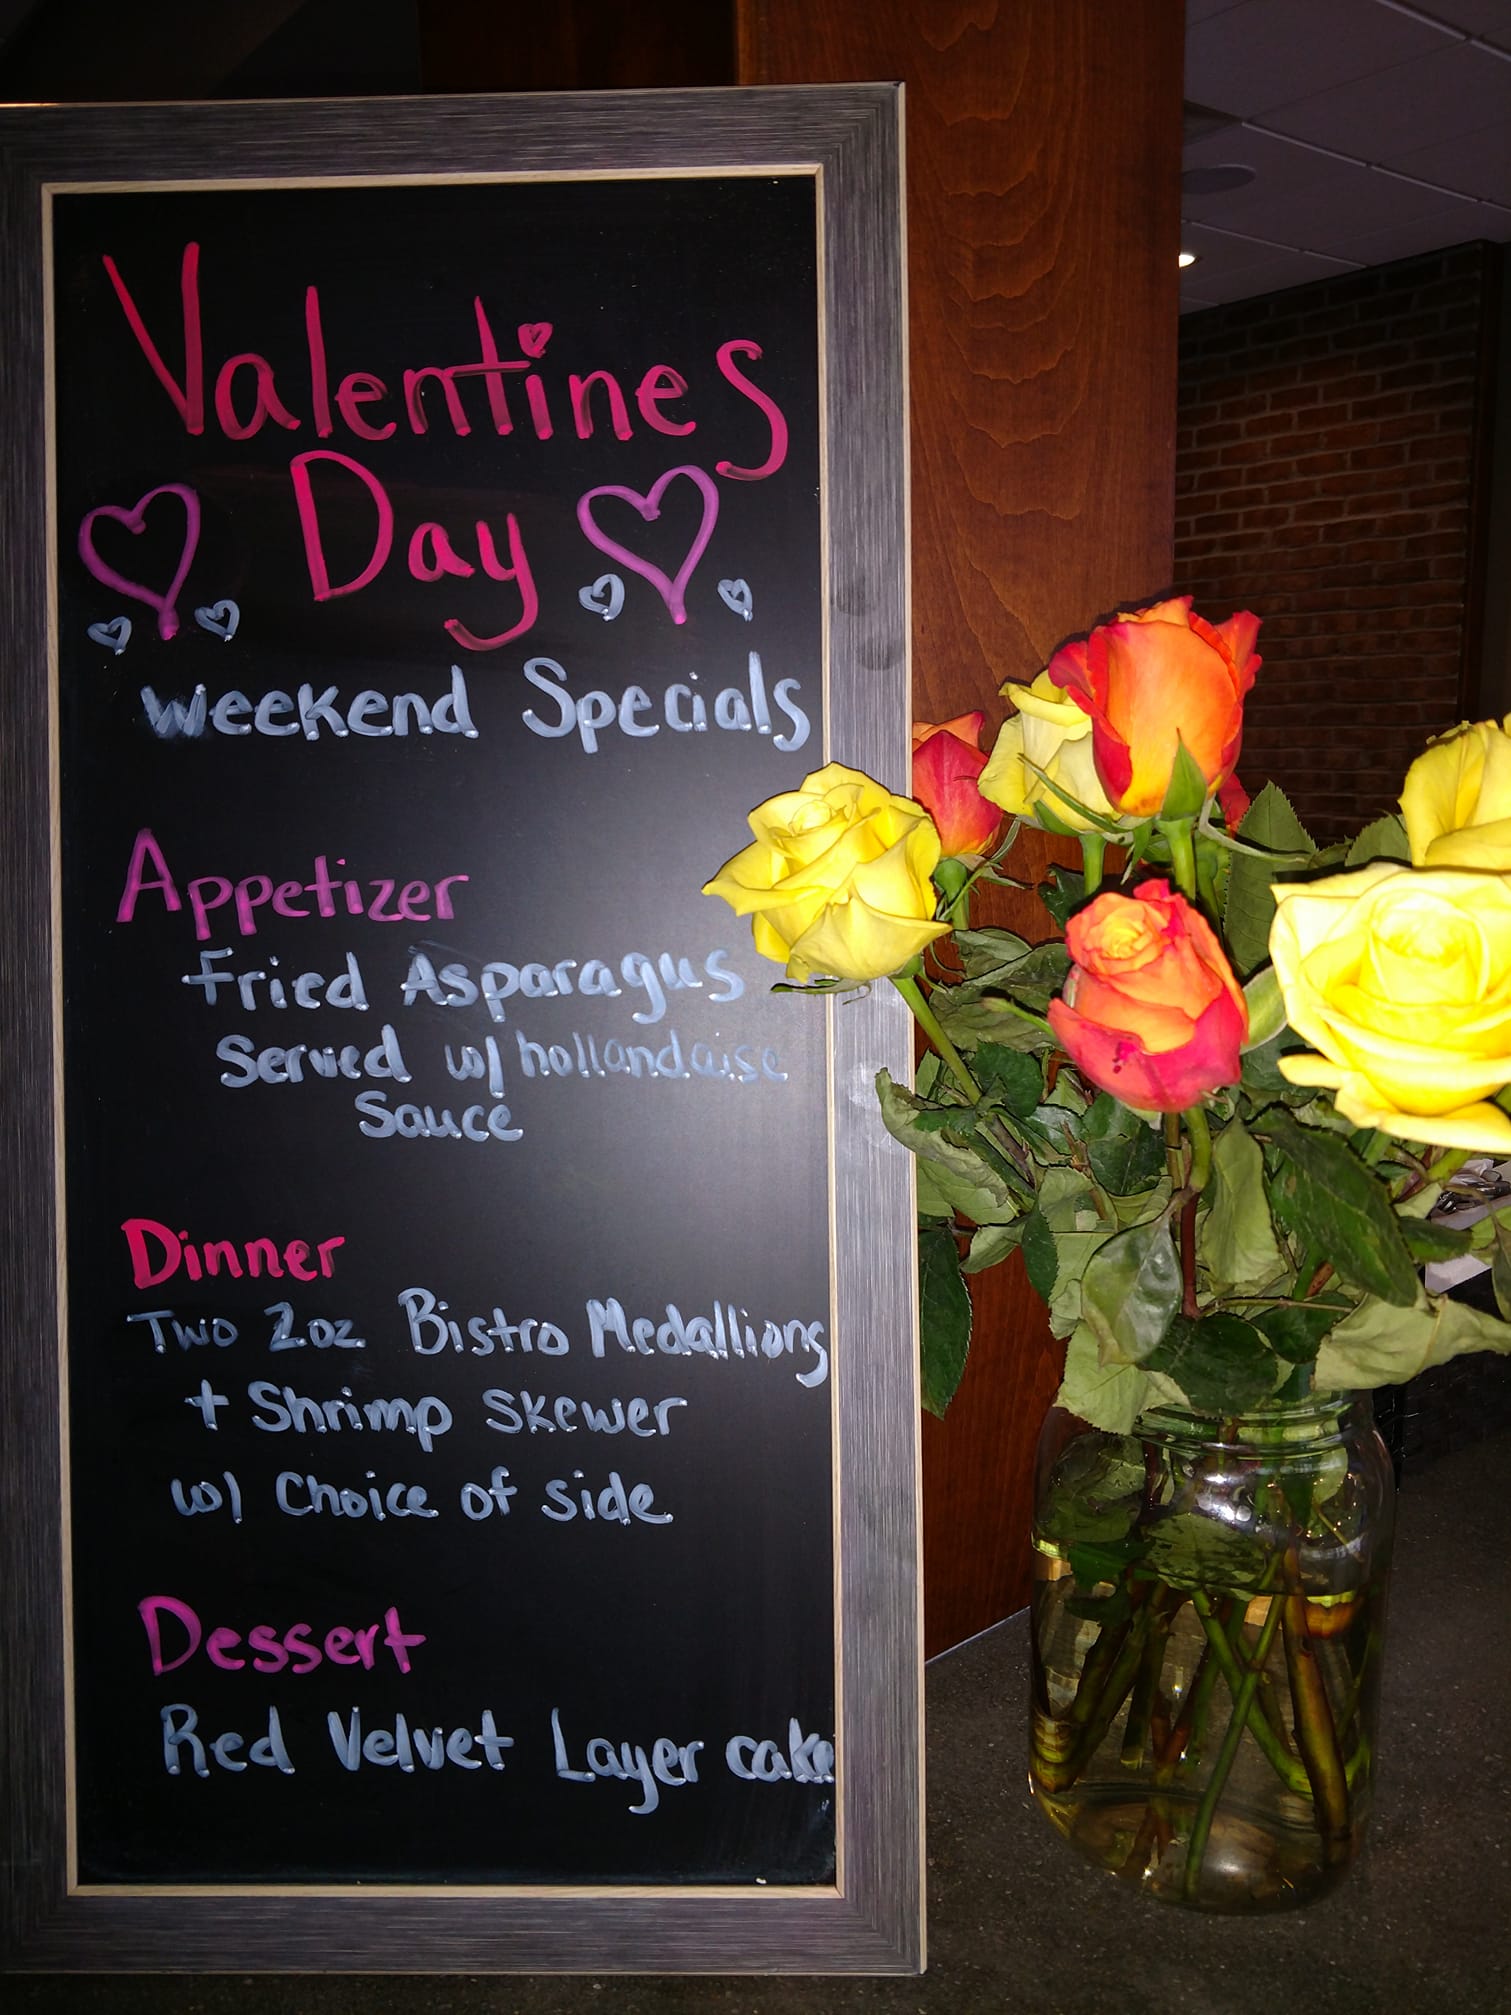 Valentines
Day
Weekend Specials
Appetizer
Fried Asparagus
Served w/ hollandaise
Sauce
Dinner
Two 2oz Bistro Medallions
+ Shrimp Skewer
w/ Choice of side
Dessert
Red Velvet Layer cake